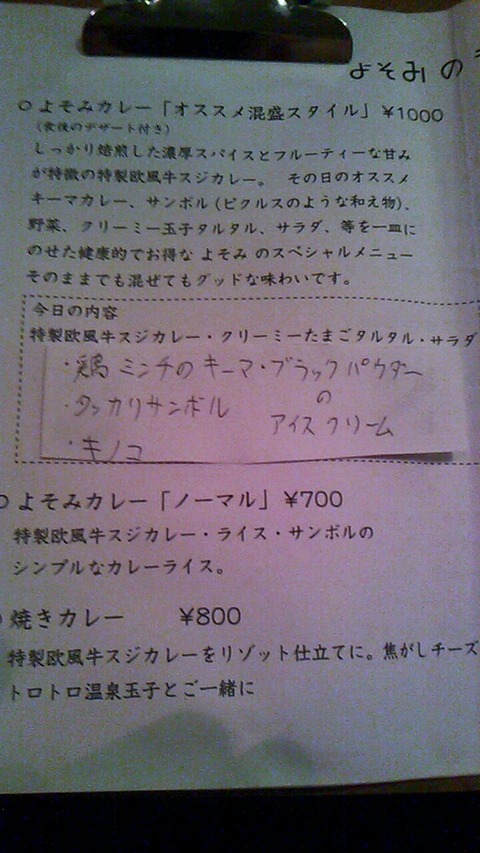 よそみの
○よそみカレー「オススメ混盛スタイル」¥1000
(食後のデザート付き)
しっかり焙煎した濃厚スパイスとフルーティーな甘み
が特徴の特製欧風牛スジカレー。 その日のオススメ
キーマカレー、サンボル(ピクルスのような和え物)、
野菜、クリーミー玉子タルタル、サラダ、等を一皿に
のせた健康的でお得な よそみ のスペシャルメニュー
そのままでも混ぜてもグッドな味わいです。
今日の内容
特製欧風牛スジカレー・クリーミーたまごタルタル・サラダ
・鶏ミンチのキーマ・ブラックパウダー
の
・タッカリサンボル
アイスクリーム
・キノコ
○よそみカレー「ノーマル」¥700
特製欧風牛スジカレー・ライス・サンボルの
シンプルなカレーライス。
焼きカレー ¥800
特製欧風牛スジカレーをリゾット仕立てに。焦がしチーズ
トロトロ温泉玉子とご一緒に